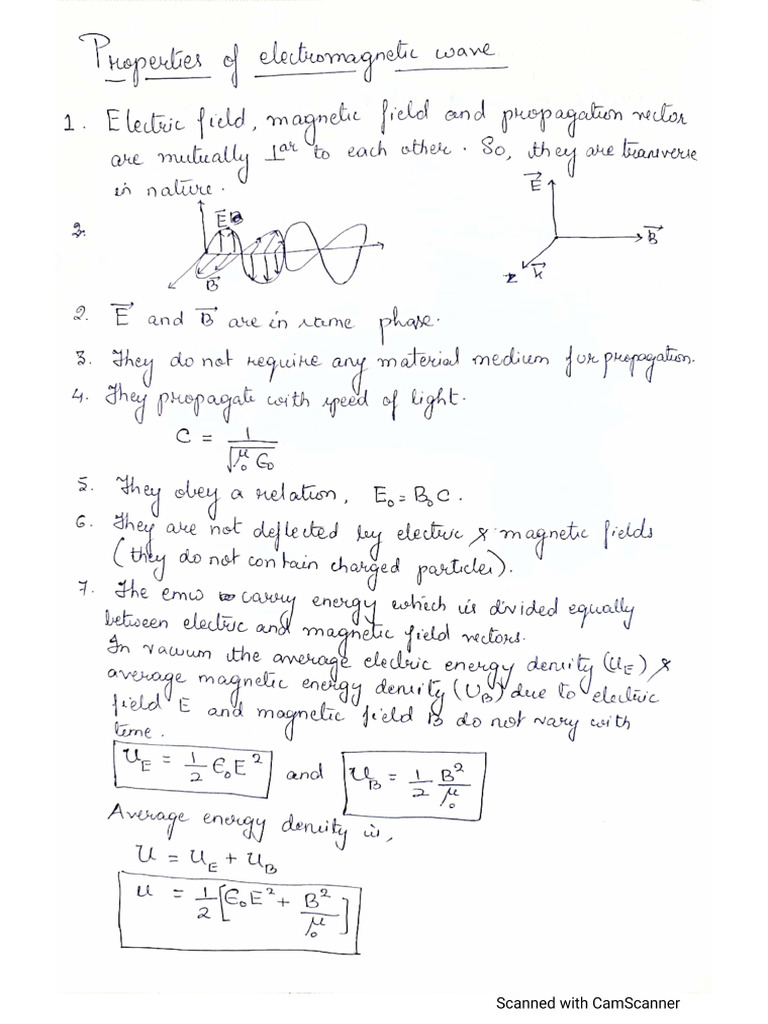 Properties of electromagnetic wave
1. Electric field, magnetic field and propagation vector
are mutually ⊥ar to each other. So, they are transverse
in nature.
E
B
E
B
Z K
2. E and B are in same phase.
3. They do not require any material medium for propagation.
4. They propagate with speed of light.
C = 1/√μ₀ϵ₀
5. They obey a relation, E₀ = B₀C.
6. They are not deflected by electric & magnetic fields
(they do not contain charged particles).
7. The emw carry energy which is divided equally
between electric and magnetic field vectors.
In vacuum the average electric energy density (UE) &
average magnetic energy density (UB) due to electric
field E and magnetic field B do not vary with
time.
UE = 1/2 ϵ₀E² and UB = 1/2 B²/μ₀
Average energy density is,
U = UE + UB
u = 1/2 [ϵ₀E² + B²/μ₀]
Scanned with CamScanner